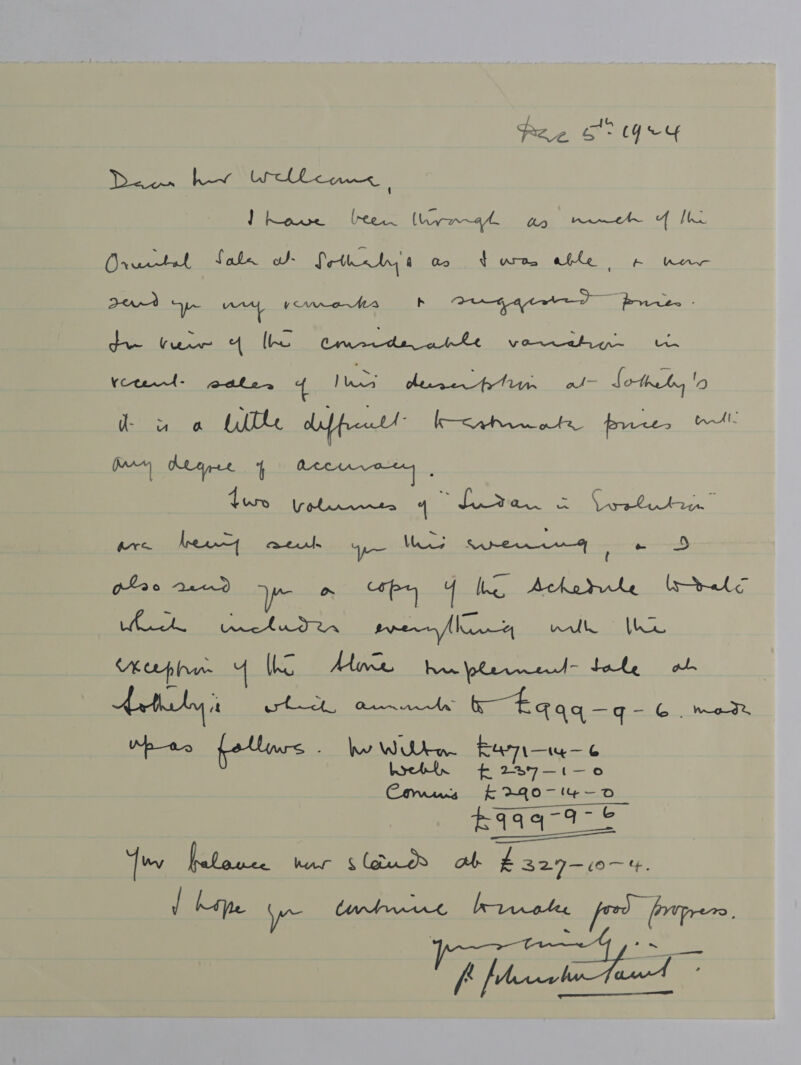 Dec 5th 1924
Dear Mr Wellcome,
I have been through as much of the
Oriental Sale at Sotheby's as I was able, & now
send you my remarks & suggested prices.
In view of the considerable variation in
recent sales of this description at Sotheby's
it is a little difficult to estimate prices with
any degree of accuracy.
Two volumes of "Sudan in Evolution"
are being sent you this evening, & I
also send you a copy of the Schedule to date
which includes everything with the
exception of the Stone Implement Sale at
Sotheby's which amounts to £999-9-6. made
up as follows. Mr Wilton £471-14-6
Webb £237-1-0
Commis £290-14-0
£999-9-6
Your balance now stands at £327-10-4.
I hope you continue to make good progress.
Yours sincerely,
P Johnston Saint.